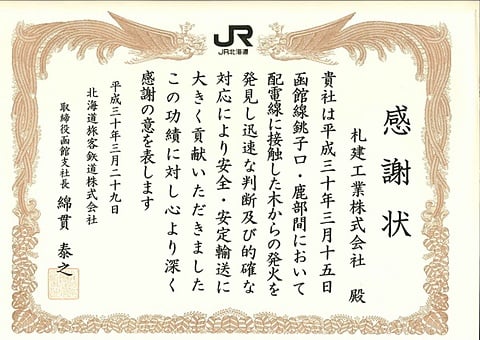 JR
JR北海道
感謝状
札建工業株式会社 殿
貴社は平成三十年三月十五日
函館線銚子口・鹿部間において
配電線に接触した木からの発火を
発見し迅速な判断及び的確な
対応により安全・安定輸送に
大きく貢献いただきました
この功績に対し心より深く
感謝の意を表します
平成三十年三月二十九日
北海道旅客鉄道株式会社
取締役函館支社長 綿貫 泰之